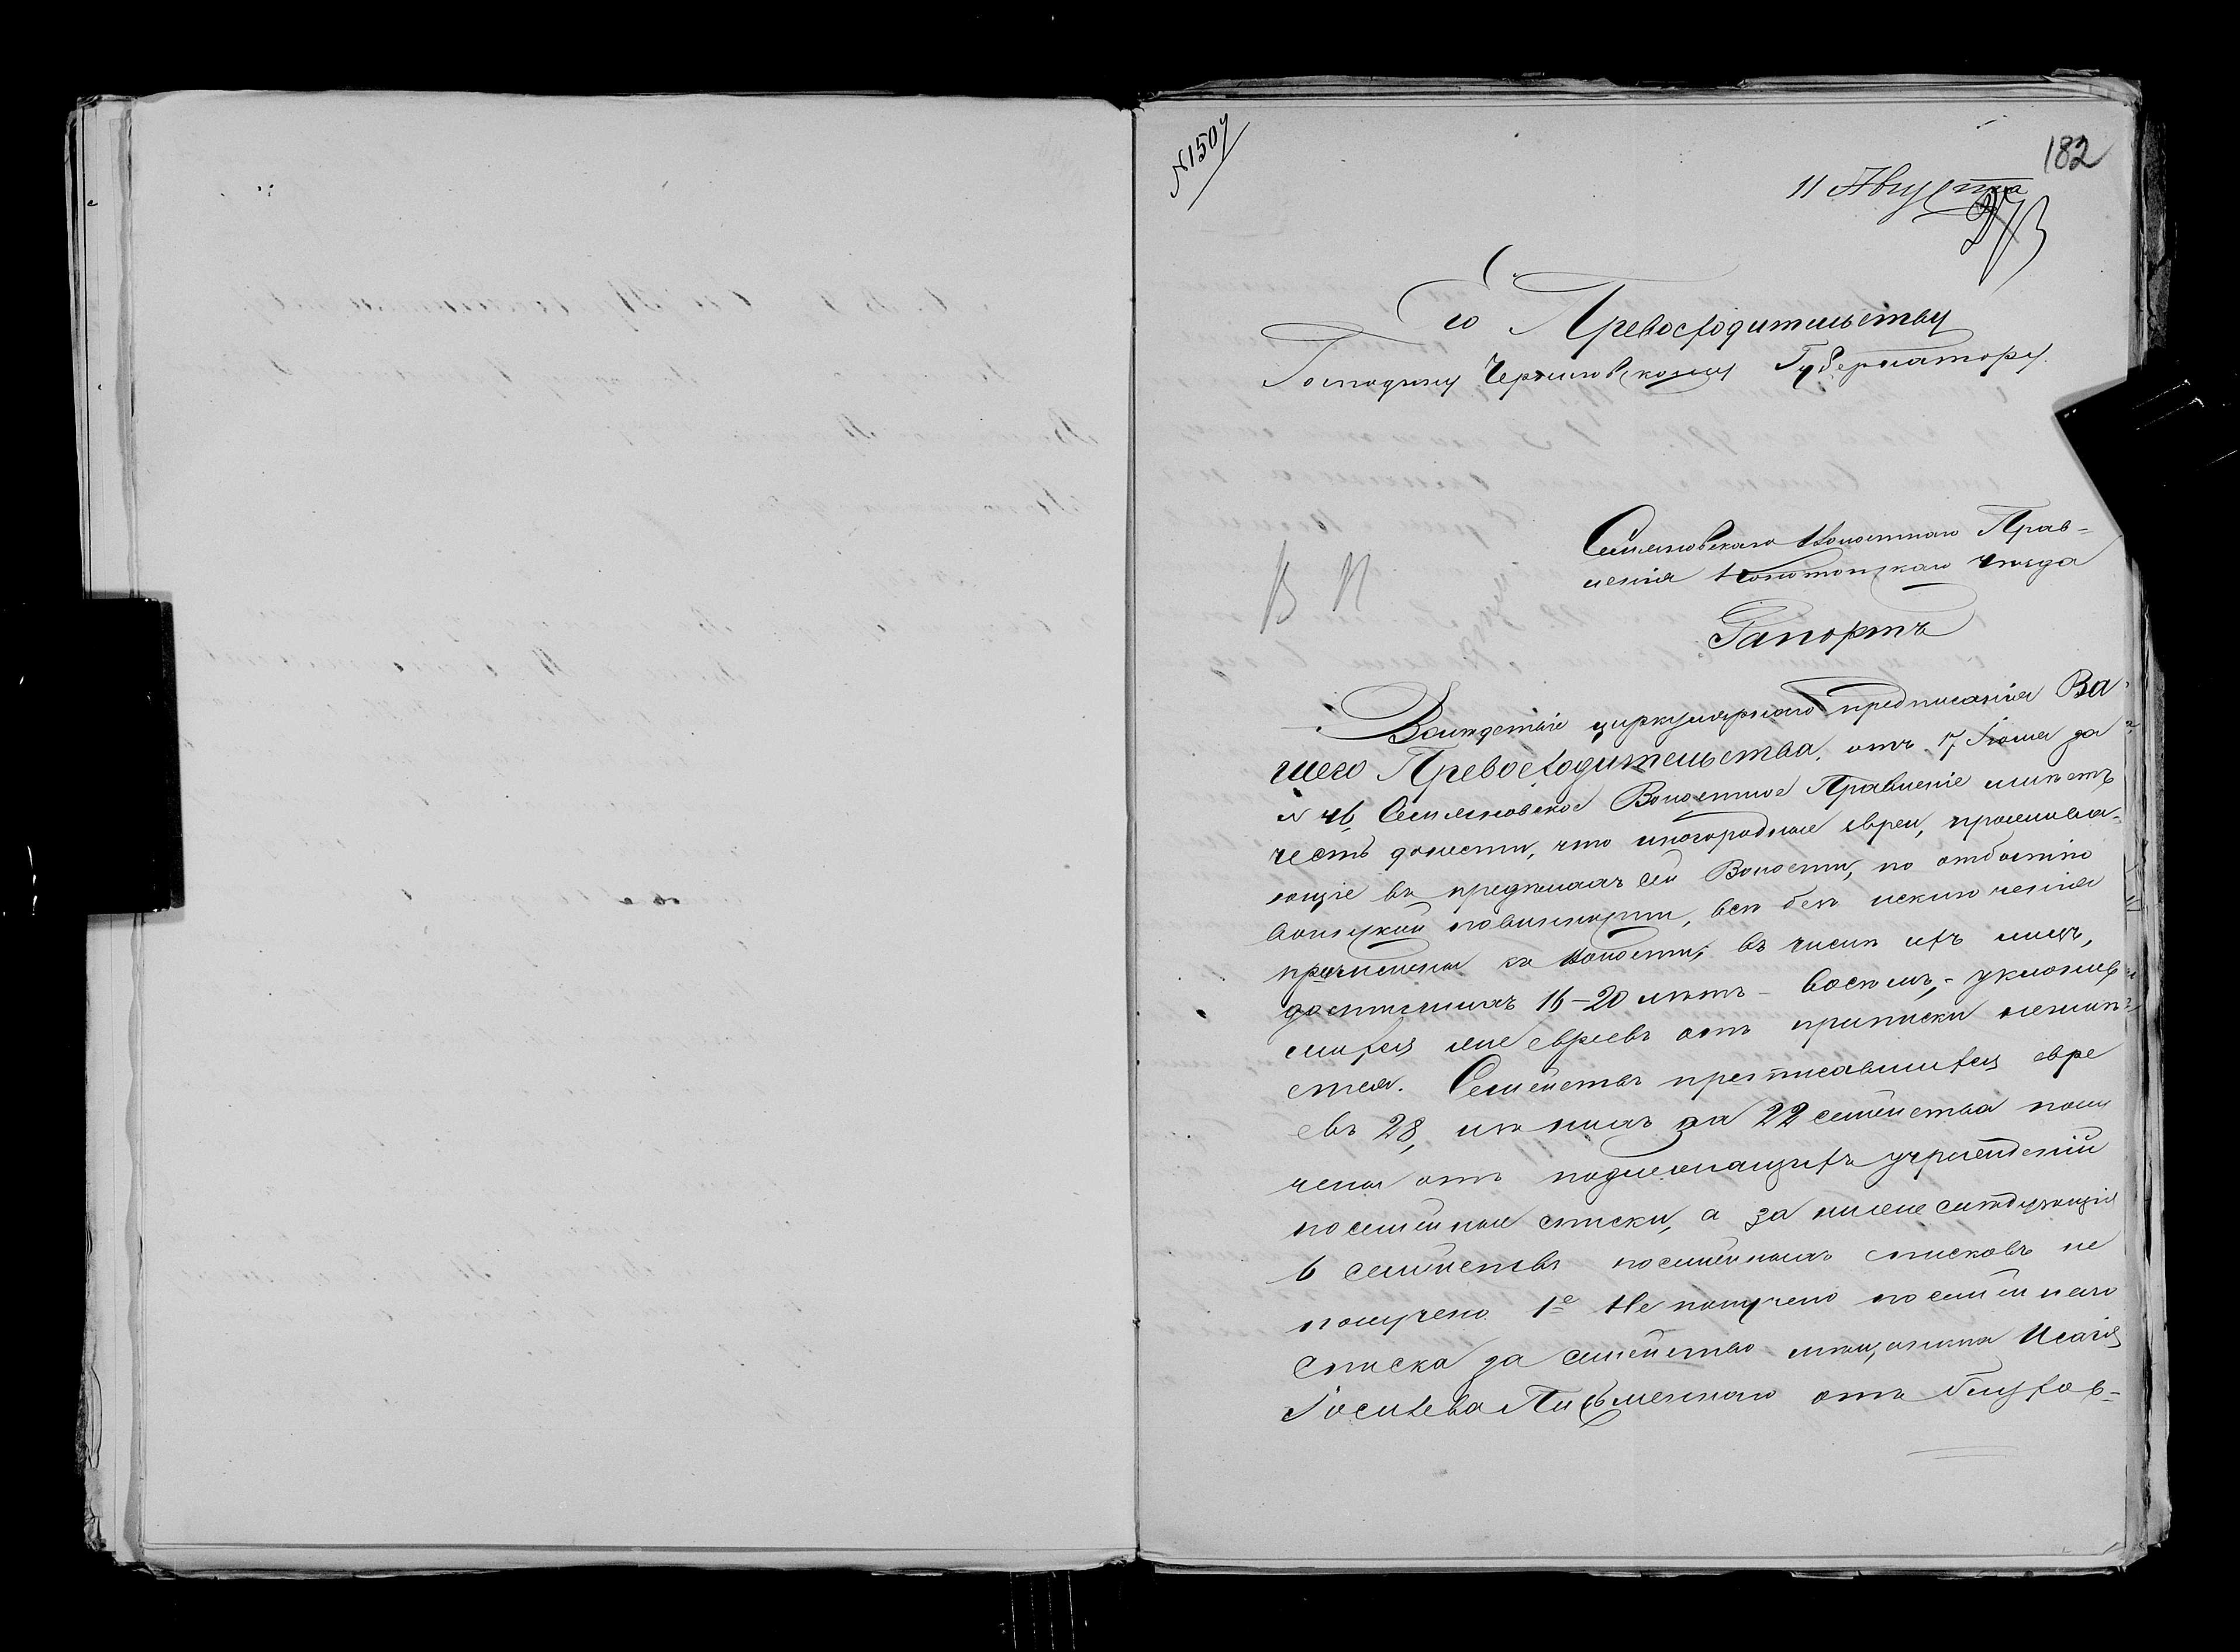 №1507
182
11 Августа
Его Превосходительству
Господину Черниговскому Губернатору.
Семяновскаго Волостнаго Прав-
ленія Конотопскаго Уѣзда
В П
Рапортъ
Вслѣдствіе циркулярнаго предписанія Ва-
шего Превосходительства, отъ 17 Іюля за
№ 46, Семяновское Волостное Правленіе имѣетъ
честь донести, что иногородные евреи, прожива-
ющіе въ предѣлахъ сей Волости, по отбытію
воинской повинности, всѣ безъ исключенія
причислены къ Волости, въ числѣ ихъ лицъ,
достигшихъ 16–20 лѣтъ – восемь, – уклонив-
шихся же евреевъ отъ приписки неимѣ-
ется. Семействъ приписавшихся евре
евъ 28, изъ нихъ за 22 семейства полу
чены отъ подлежащихъ учрежденій
посемейные списки, а за ниже слѣдующія
6 семействъ посемейныхъ списковъ не
получено 1е Не получено посемейнаго
списка за семейство мѣщанина Исаія
Іосилева Письменнаго отъ Глухов-